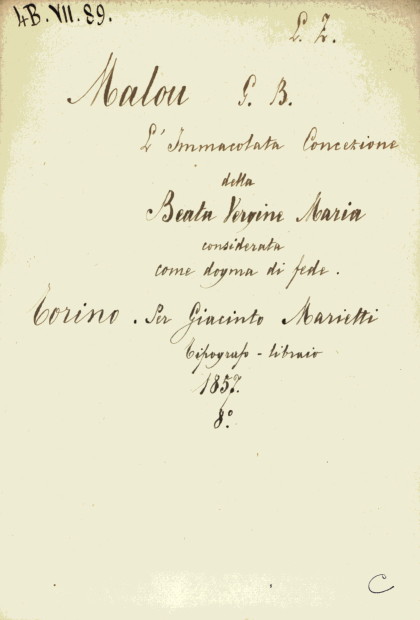 4B. VII. 89.
L. Z.
Malou G. B.
L' Immacolata Concezione
della
Beata Vergine Maria
considerata
come dogma di fede.
Torino. Per Giacinto Marietti
Tipografo-libraio
1857.
8º
C